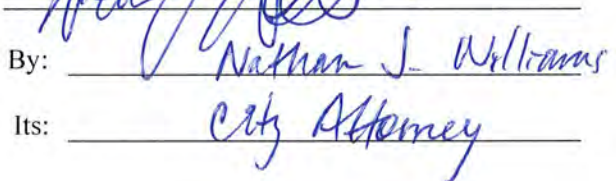 By: Nathan J. Williams
Its: City Attorney